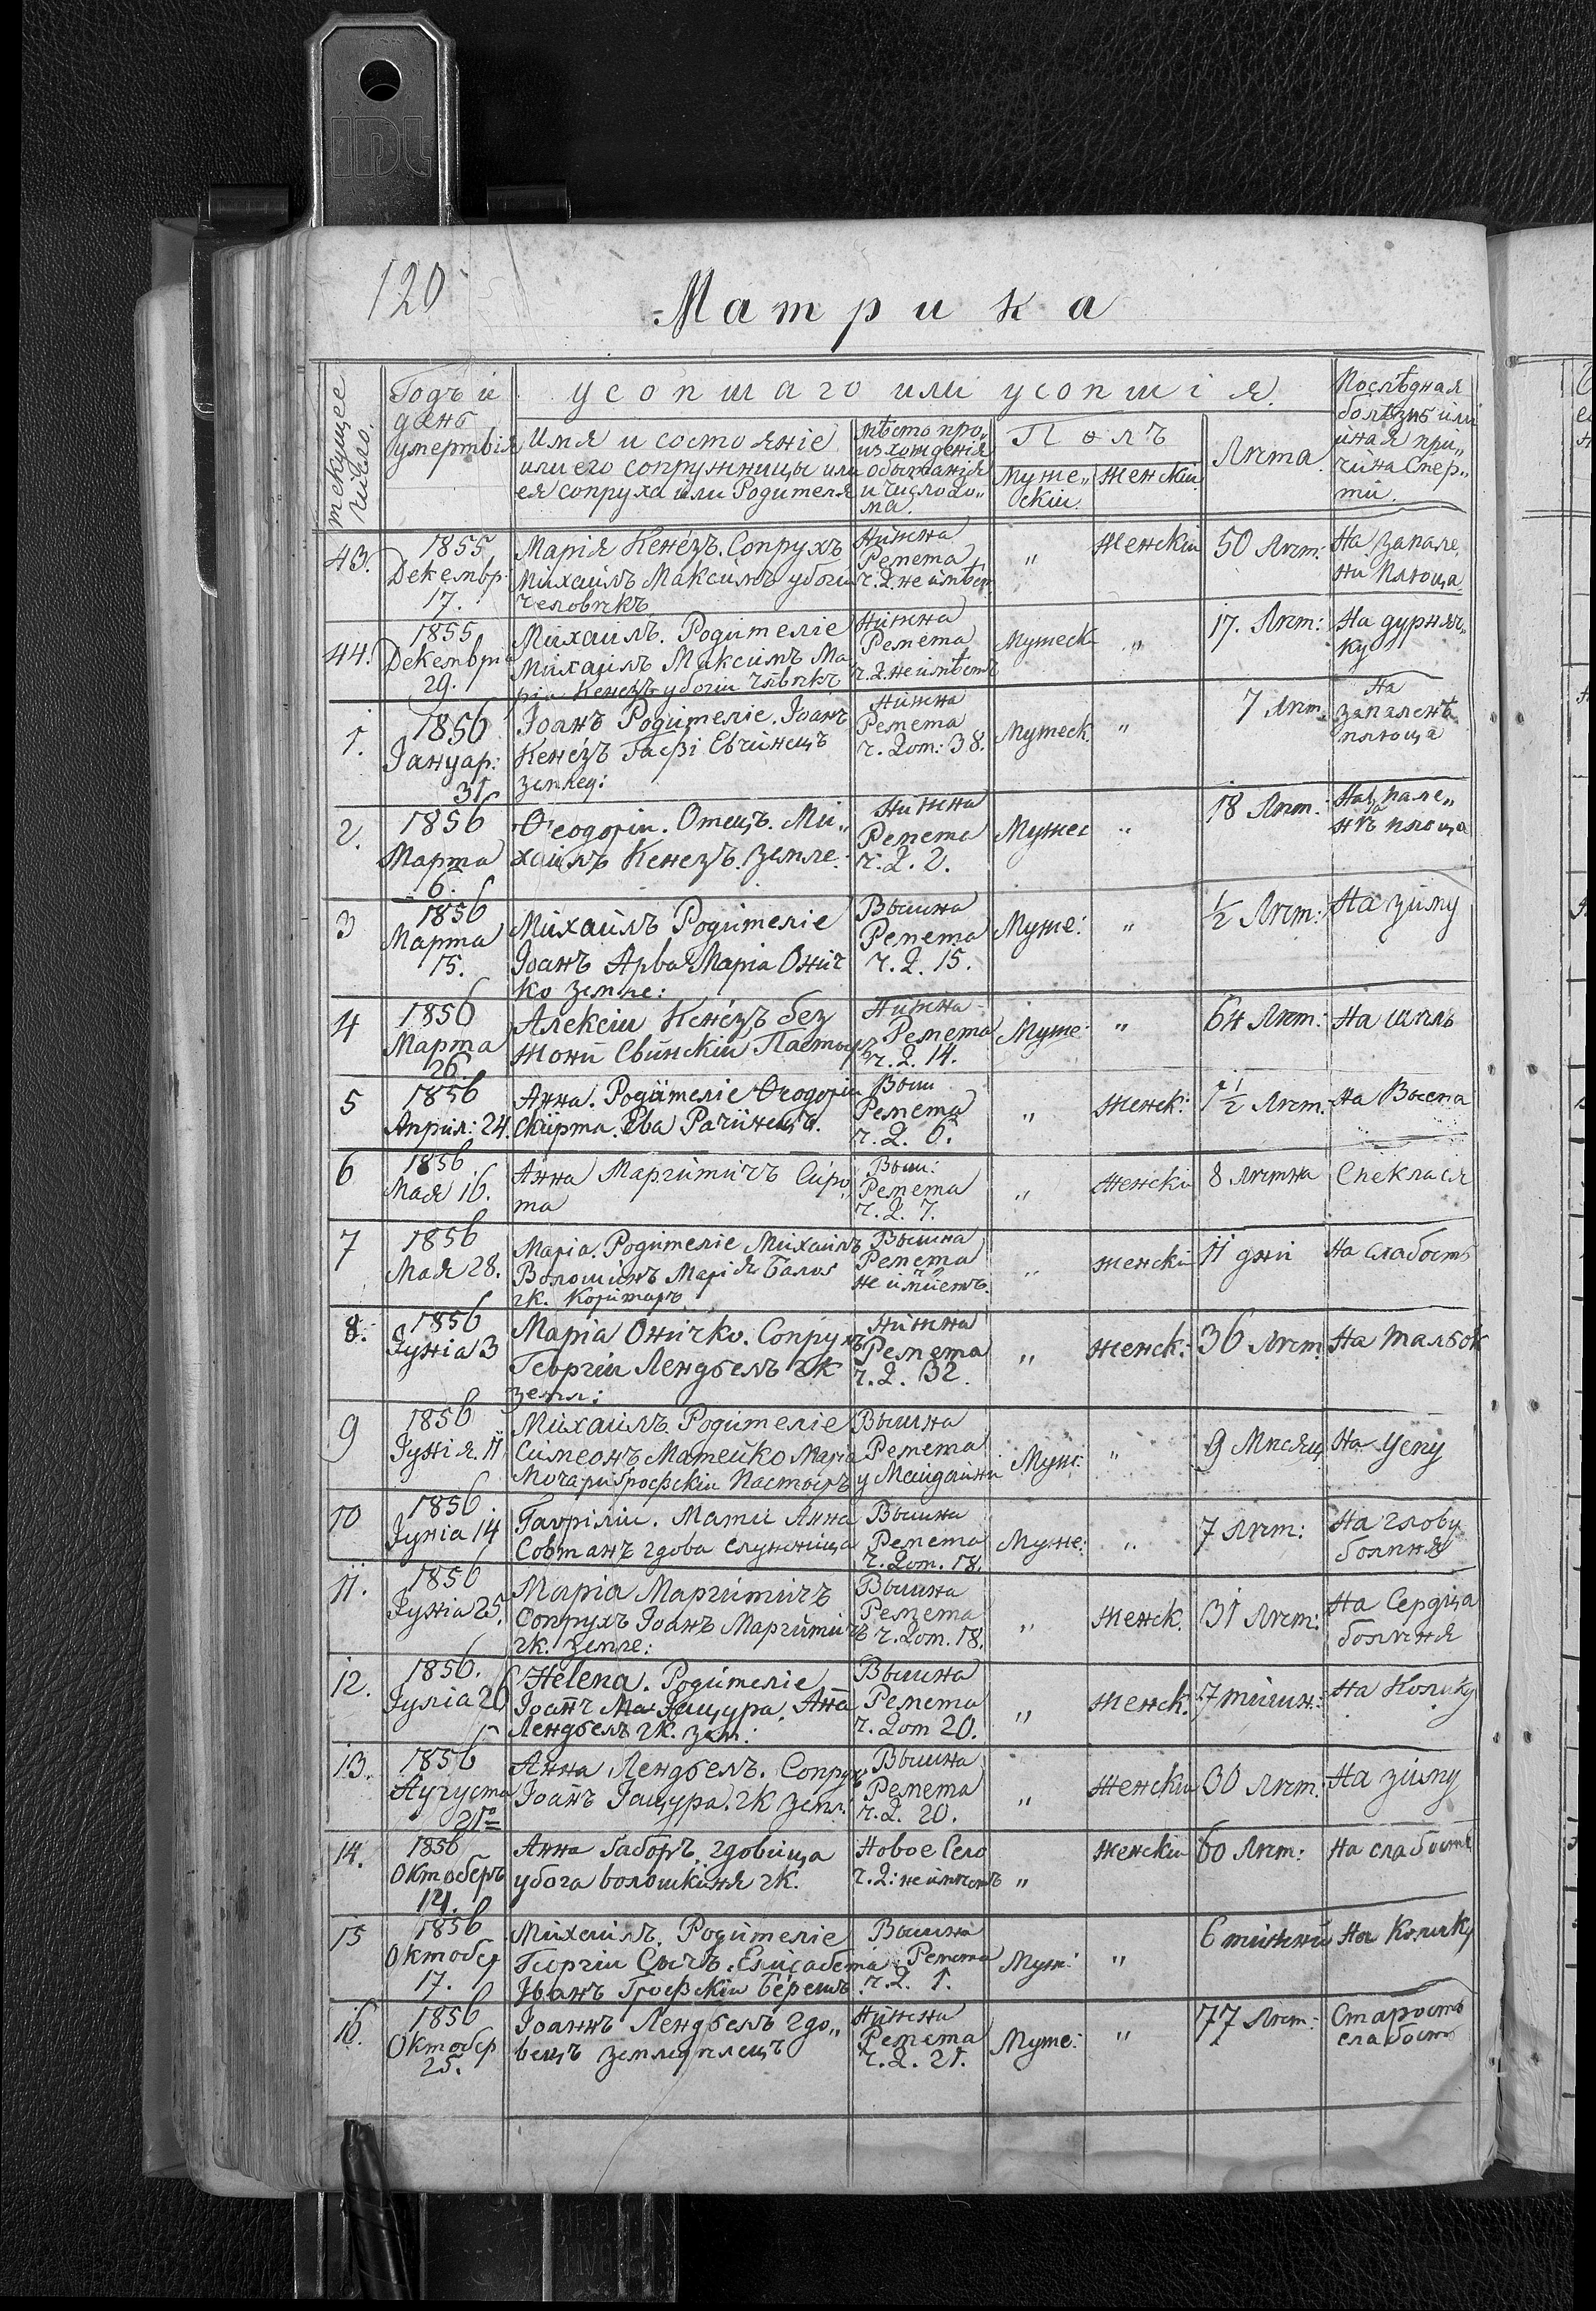 120
Матрика
текущее число.
Годъ и
день
умертвія
усопшаго или усопшія.
Имя и состояніе
или его сопружницы или
ея сопруха или Родителя
мѣсто про„
изхожденія
обытанія
и число до„
ма.
Полъ
Муже„
скій.
Женскій
Лѣта.
Послѣдная
болѣзнь или
иная при„
чина Смер„
ти.
43.
1855
Декембр:
17.
Марія Кенéзъ. Сопрухъ
Михаилъ Максимъ убогій
человѣкъ
Нижна
Ремета
ч. д. не имѣет
„
Женскій
50 Лѣт:
На запале„
ни плюца
44.
1855
Декембріа
29.
Михаилъ. Родителіе
Михаилъ Максимъ Ма
ріа Кенезъ убогій чловѣкъ
Нижна
Ремета
ч. д. не имѣетъ
Мужеск
„
17. Лѣт:
На дурняч„
ку
1.
1856
Јануар:
31
Јоанъ Родителіе. Јоанъ
Кенéзъ Гафі Евчинецъ
землед:
Нижна
Ремета
ч. дом: 38.
Мужеск.
„
7 Лѣт.
На
запаленѣ
плюца
2.
1856
Марта
6.
Ѳеодорій. Отецъ. Ми„
хаилъ Кенезъ. земле:
Нижна
Ремета
ч. д. 2.
Мужес
„
18 Лѣт:
На запале„
нѣ плюца
3
1856
Марта
15.
Михаилъ Родителіе
Јоанъ Арва Маріа Онич
ко земле:
Вышна
Ремета
ч. д. 15.
Муже:
„
½ Лѣт:
На зиму
4
1856
Марта
26.
Алексій Кенéзъ без
жони Свинскій Пастырь
Нижна
Ремета
ч. д. 14.
Муже
„
64 Лѣт:
На
5
1856
Април: 24.
Анна. Родителіе Ѳеодорій
Скирта. Ева Рачинецъ.
Выш
Ремета
ч. д. 6.
„
Женск:
1½ Лѣт.
На Высепа
6
1856
Мая 16.
Анна Маргитичъ Сиро„
та
Выш:
Ремета
ч. д. 7.
„
Женскі
8 лѣтна
Спеклася
7
1856
Мая 28.
Маріа. Родителіе Михаилъ
Волошинъ Маріа Балог
гк. Коритаръ
Вышна
Ремета
не имѣетъ.
„
женскі
11 дни
На слабость
8.
1856
Јуніа 3
Маріа Оничко. Сопрухъ
Георгій Лендѣелъ гк
земл:
Нижна
Ремета
ч. д. 32.
„
женск:
36 Лѣт.
На
9
1856
Јунія. 11
Михаилъ. Родителіе
Симеонъ Матейко Маріа
Мочари грофскій Пастырь
Вышна
Ремета
у Майдáни
Муж:
„
9 Мѣсяц
На Усту
10
1856
Јуніа 14
Гавріилй. Мати Анна
Совтанъ гдова служница
Вышна
Ремета
ч. дом. 18.
Муже:
„
7 Лѣт:
На глову
болѣня
11.
1856
Јуніа 25.
Маріа Маргитичъ
Сопрухъ Јоанъ Маргитичъ
гк. земле:
Вышна
Ремета
ч. дом. 18.
„
Женск.
31 Лѣт:
На Сердца
болѣня
12.
1856.
Јуліа 20
Helena. Родителіе
Јоанъ Ма Јащура. Анна
Лендѣелъ гк. зем:
Вышна
Ремета
ч. дом 20.
„
Женск.
7 тижн:
На Колику
13.
1856
Аугуста
21º
Анна Лендѣелъ. Сопрухъ
Јоанъ Јащура. гк земл:
Вышна
Ремета
ч. д. 20.
„
Женскій
30 Лѣт.
На зиму
14.
1856
Октоберъ
14.
Анна Габоръ, гдовица
убога волошкиня гк.
Новое Село
ч. д: не имѣетъ
„
женскій
60 Лѣт:
На слабость
15
1856
Октобер
17.
Михаилъ. Родителіе
Георгій Сычъ. Елисабета
Јванъ Грофскій Бéрешъ.
Вышна
Ремета
ч. д. 1.
Муж:
„
6 тижний
На Колику
16.
1856
Октобер
25.
Јоаннъ Лендѣелъ гдо„
вецъ земледѣлецъ
Нижна
Ремета
ч. д. 21.
Муже:
„
77 Лѣт:
Старость
слабость